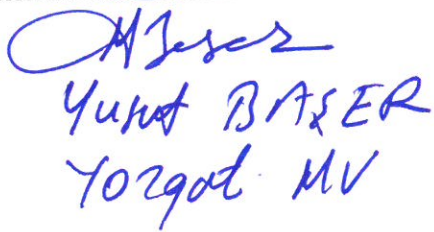 Yusuf BAŞER
Yozgat MV